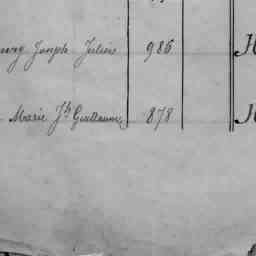 Joseph Julien 986
Marie Jh Guillaume 878